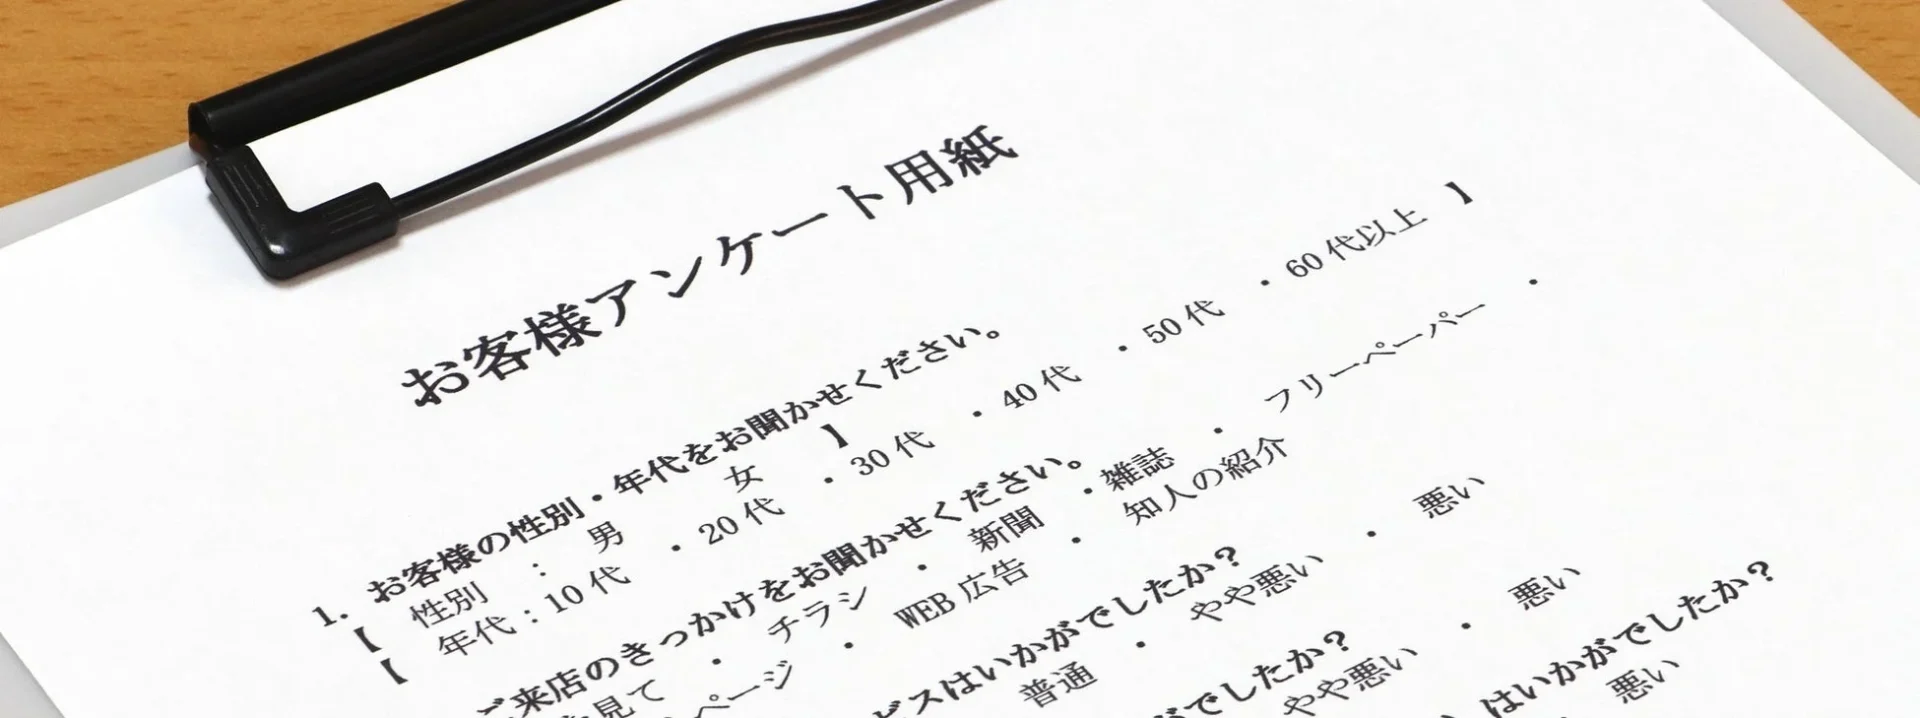 お客様アンケート用紙
1. お客様の性別・年代をお聞かせください。
【 性別 : 男 女 】
【 年代:10代 ・20代 ・30代 ・40代 ・50代 ・60代以上 】
ご来店のきっかけをお聞かせください。
見て ・ チラシ ・ 新聞 ・雑誌 ・ フリーペーパー ・
ページ ・ WEB広告 ・ 知人の紹介
ビスはいかがでしたか?
普通 ・ やや悪い ・ 悪い
がでしたか?
やや悪い ・ 悪い
はいかがでしたか?
悪い